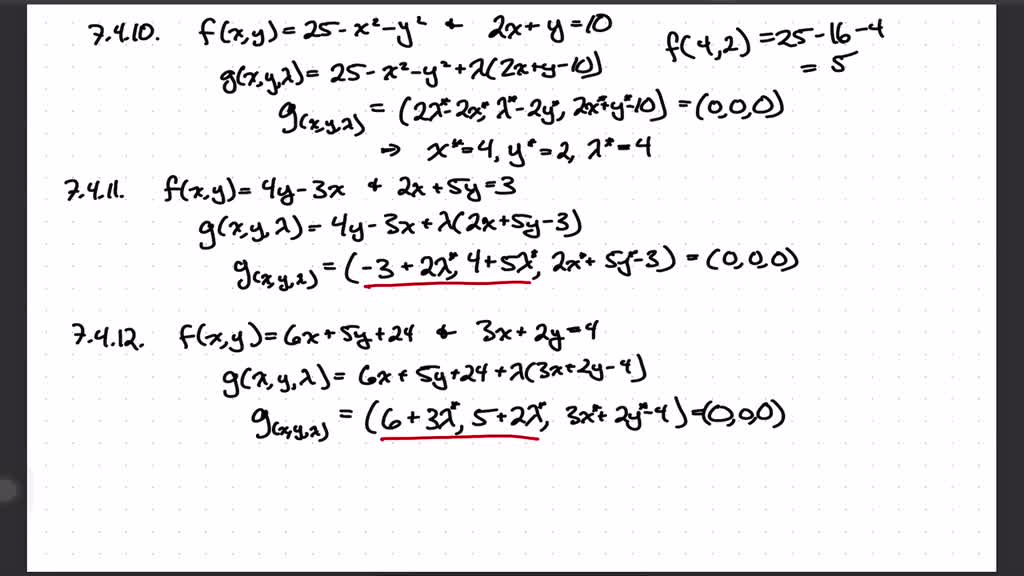 7.4.10. f(x,y) = 25-x²-y² & 2x+y=10
f(4,2) = 25-16-4
= 5
g(x,y,λ) = 25-x²-y²+λ(2x+y-10)
g(x,y,λ) = (2λ*-2x*, λ*-2y*, 2x*+y*-10) = (0,0,0)
→ x*=4, y*=2, λ*=4
7.4.11. f(x,y) = 4y-3x & 2x+5y=3
g(x,y,λ) = 4y-3x+λ(2x+5y-3)
g(x,y,λ) = (-3+2λ*, 4+5λ*, 2x*+5y*-3) = (0,0,0)
7.4.12. f(x,y) = 6x+5y+24 & 3x+2y=4
g(x,y,λ) = 6x+5y+24+λ(3x+2y-4)
g(x,y,λ) = (6+3λ*, 5+2λ*, 3x*+2y*-4) = (0,0,0)